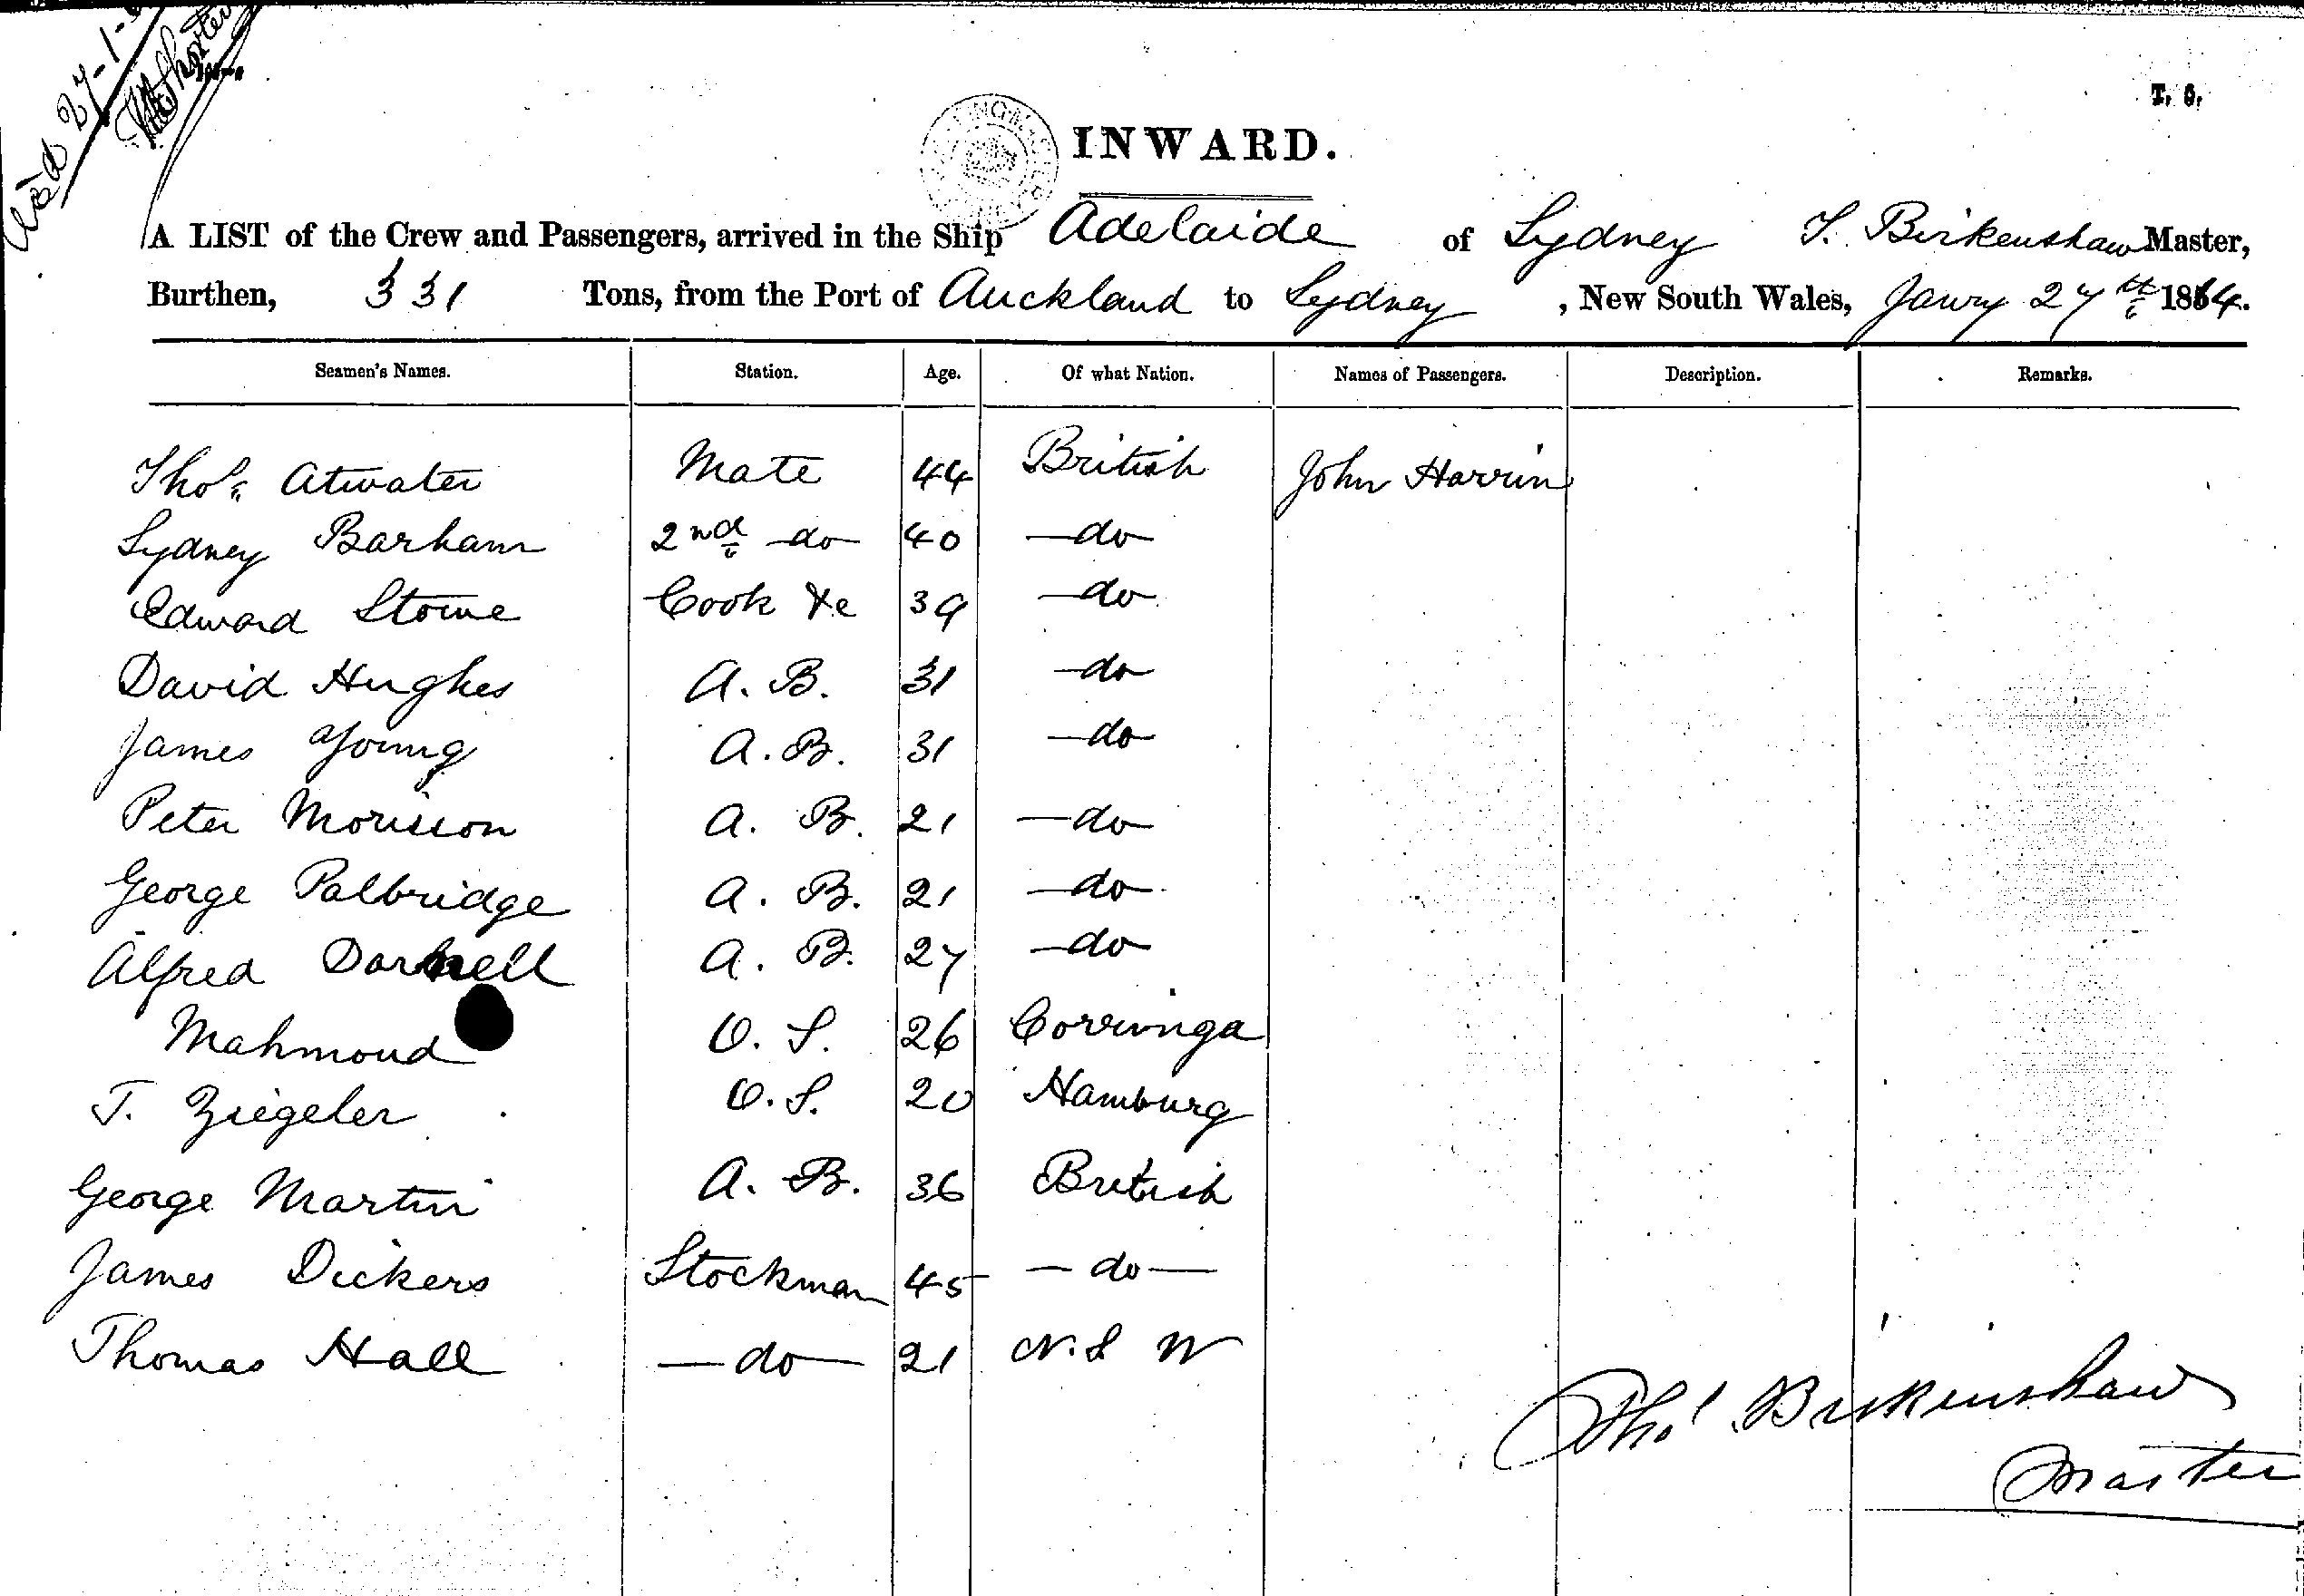 27-1-
T. 6.
INWARD.
A LIST of the Crew and Passengers, arrived in the Ship Adelaide of Sydney T. Birkenshaw Master,
Burthen, 331 Tons, from the Port of Auckland to Sydney, New South Wales, Jany 27th 1864.
Seamen's Names. Station. Age. Of what Nation. Names of Passengers. Description. Remarks.
Thos. Atwater Mate 44 British John Harrin
Sydney Barham 2nd do 40 do
Edward Stowe Cook &c 39 do
David Hughes A. B. 31 do
James Young A. B. 31 do
Peter Morisson A. B. 21 do
George Palbridge A. B. 21 do
Alfred Darnell A. B. 27 do
Mahmoud O. S. 26 Corringa
T. Ziegeler O. S. 20 Hamburg
George Martin A. B. 36 British
James Dickers Stockman 45 do
Thomas Hall do 21 N. S W
Thos Birkenshaw
Master